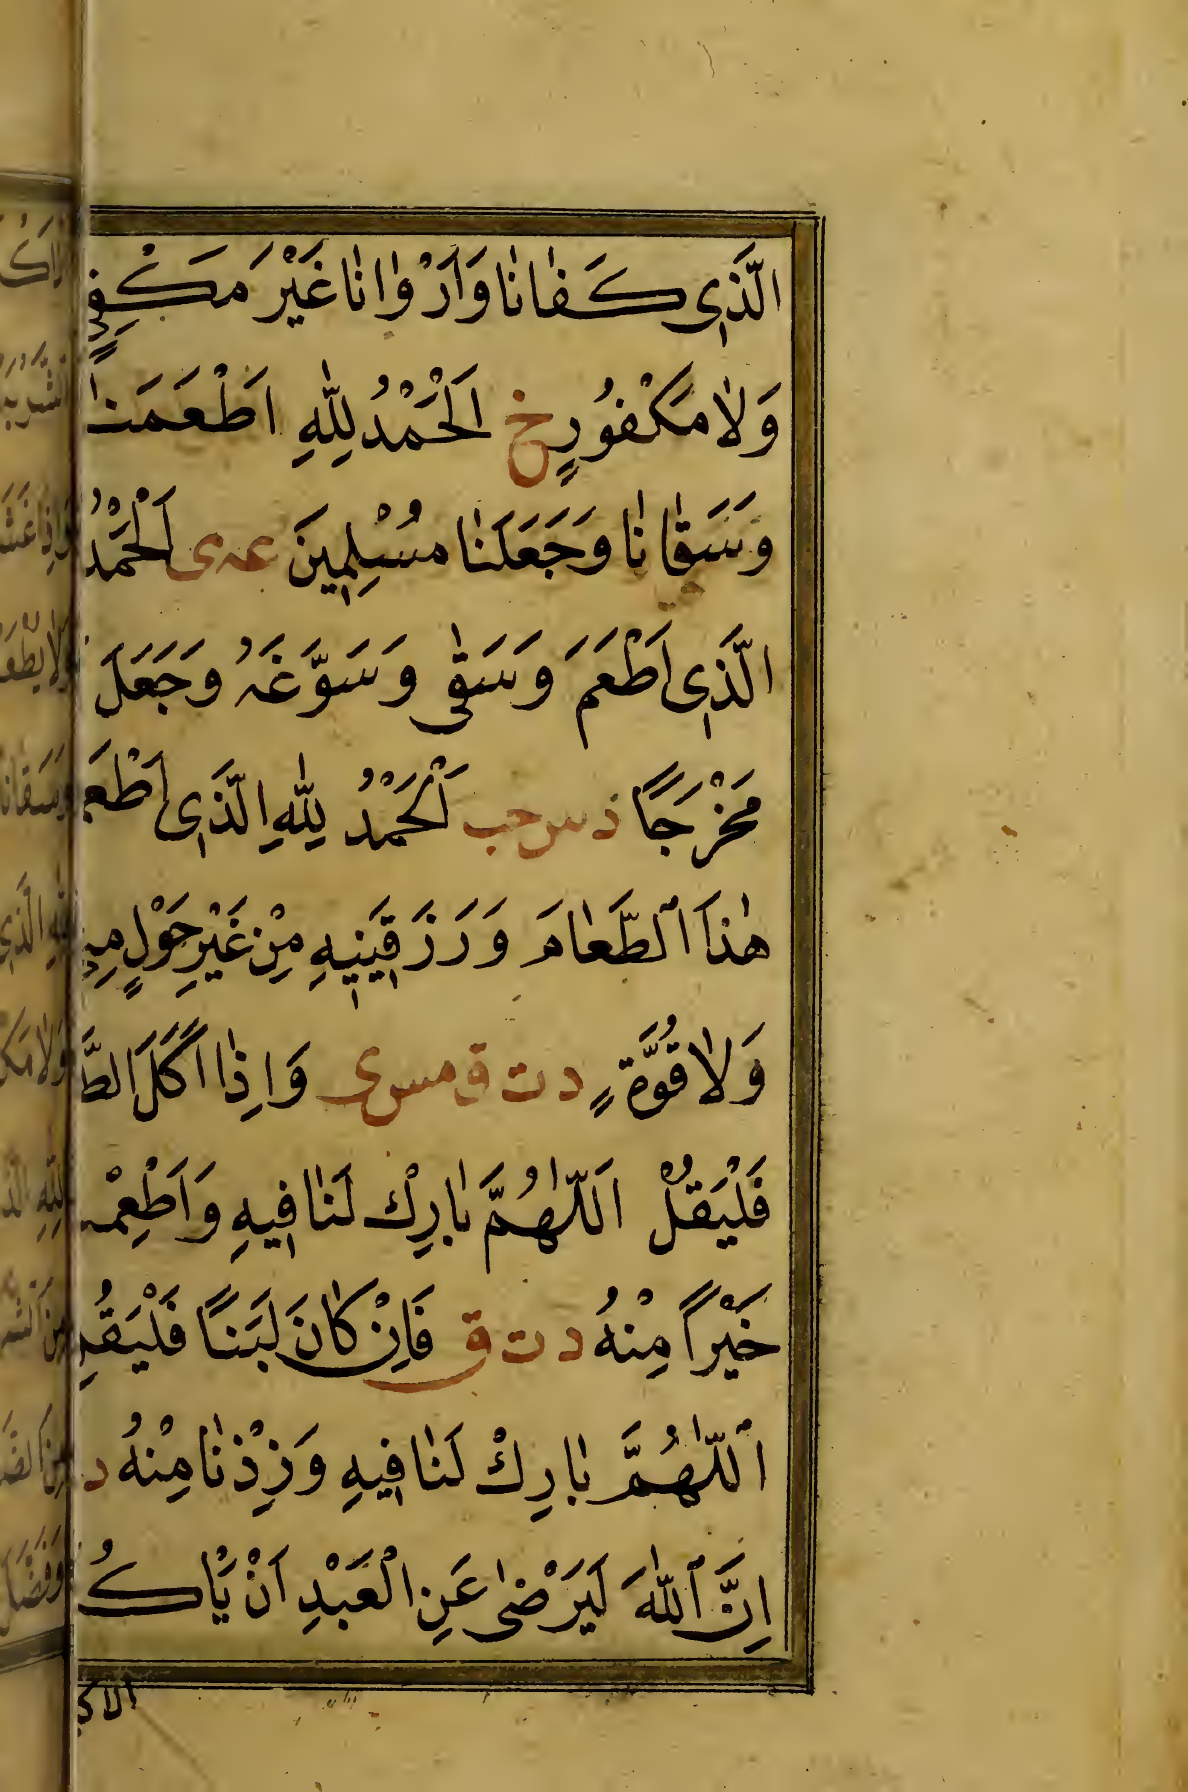 الَّذِي كَفَانَا وَاَرْوَانَا غَيْرَ مَكْفِيٍّ
وَلَا مَكْفُورٍ خ اَلْحَمْدُ لِلّٰهِ اَطْعَمَنَا
وَسَقَانَا وَجَعَلَنَا مُسْلِمِينَ عه ى اَلْحَمْدُ
الَّذِي اَطْعَمَ وَسَقٰى وَسَوَّغَهُ وَجَعَلَ
مَخْرَجًا د س حب اَلْحَمْدُ لِلّٰهِ الَّذِي اَطْعَمَ
هٰذَا الطَّعَامَ وَرَزَقَنِيهِ مِنْ غَيْرِ حَوْلٍ مِنِّي
وَلَا قُوَّةٍ د ت ق مس ى وَاِذَا اَكَلَ الطَّ
فَلْيَقُلْ اَللّٰهُمَّ بَارِكْ لَنَا فِيهِ وَاَطْعِمْ
خَيْرًا مِنْهُ د ت ق فَاِنْ كَانَ لَبَنًا فَلْيَقُلِ
اَللّٰهُمَّ بَارِكْ لَنَا فِيهِ وَزِدْنَا مِنْهُ د
اِنَّ اللّٰهَ لَيَرْضٰى عَنِ الْعَبْدِ اَنْ يَأْكُ
الاك